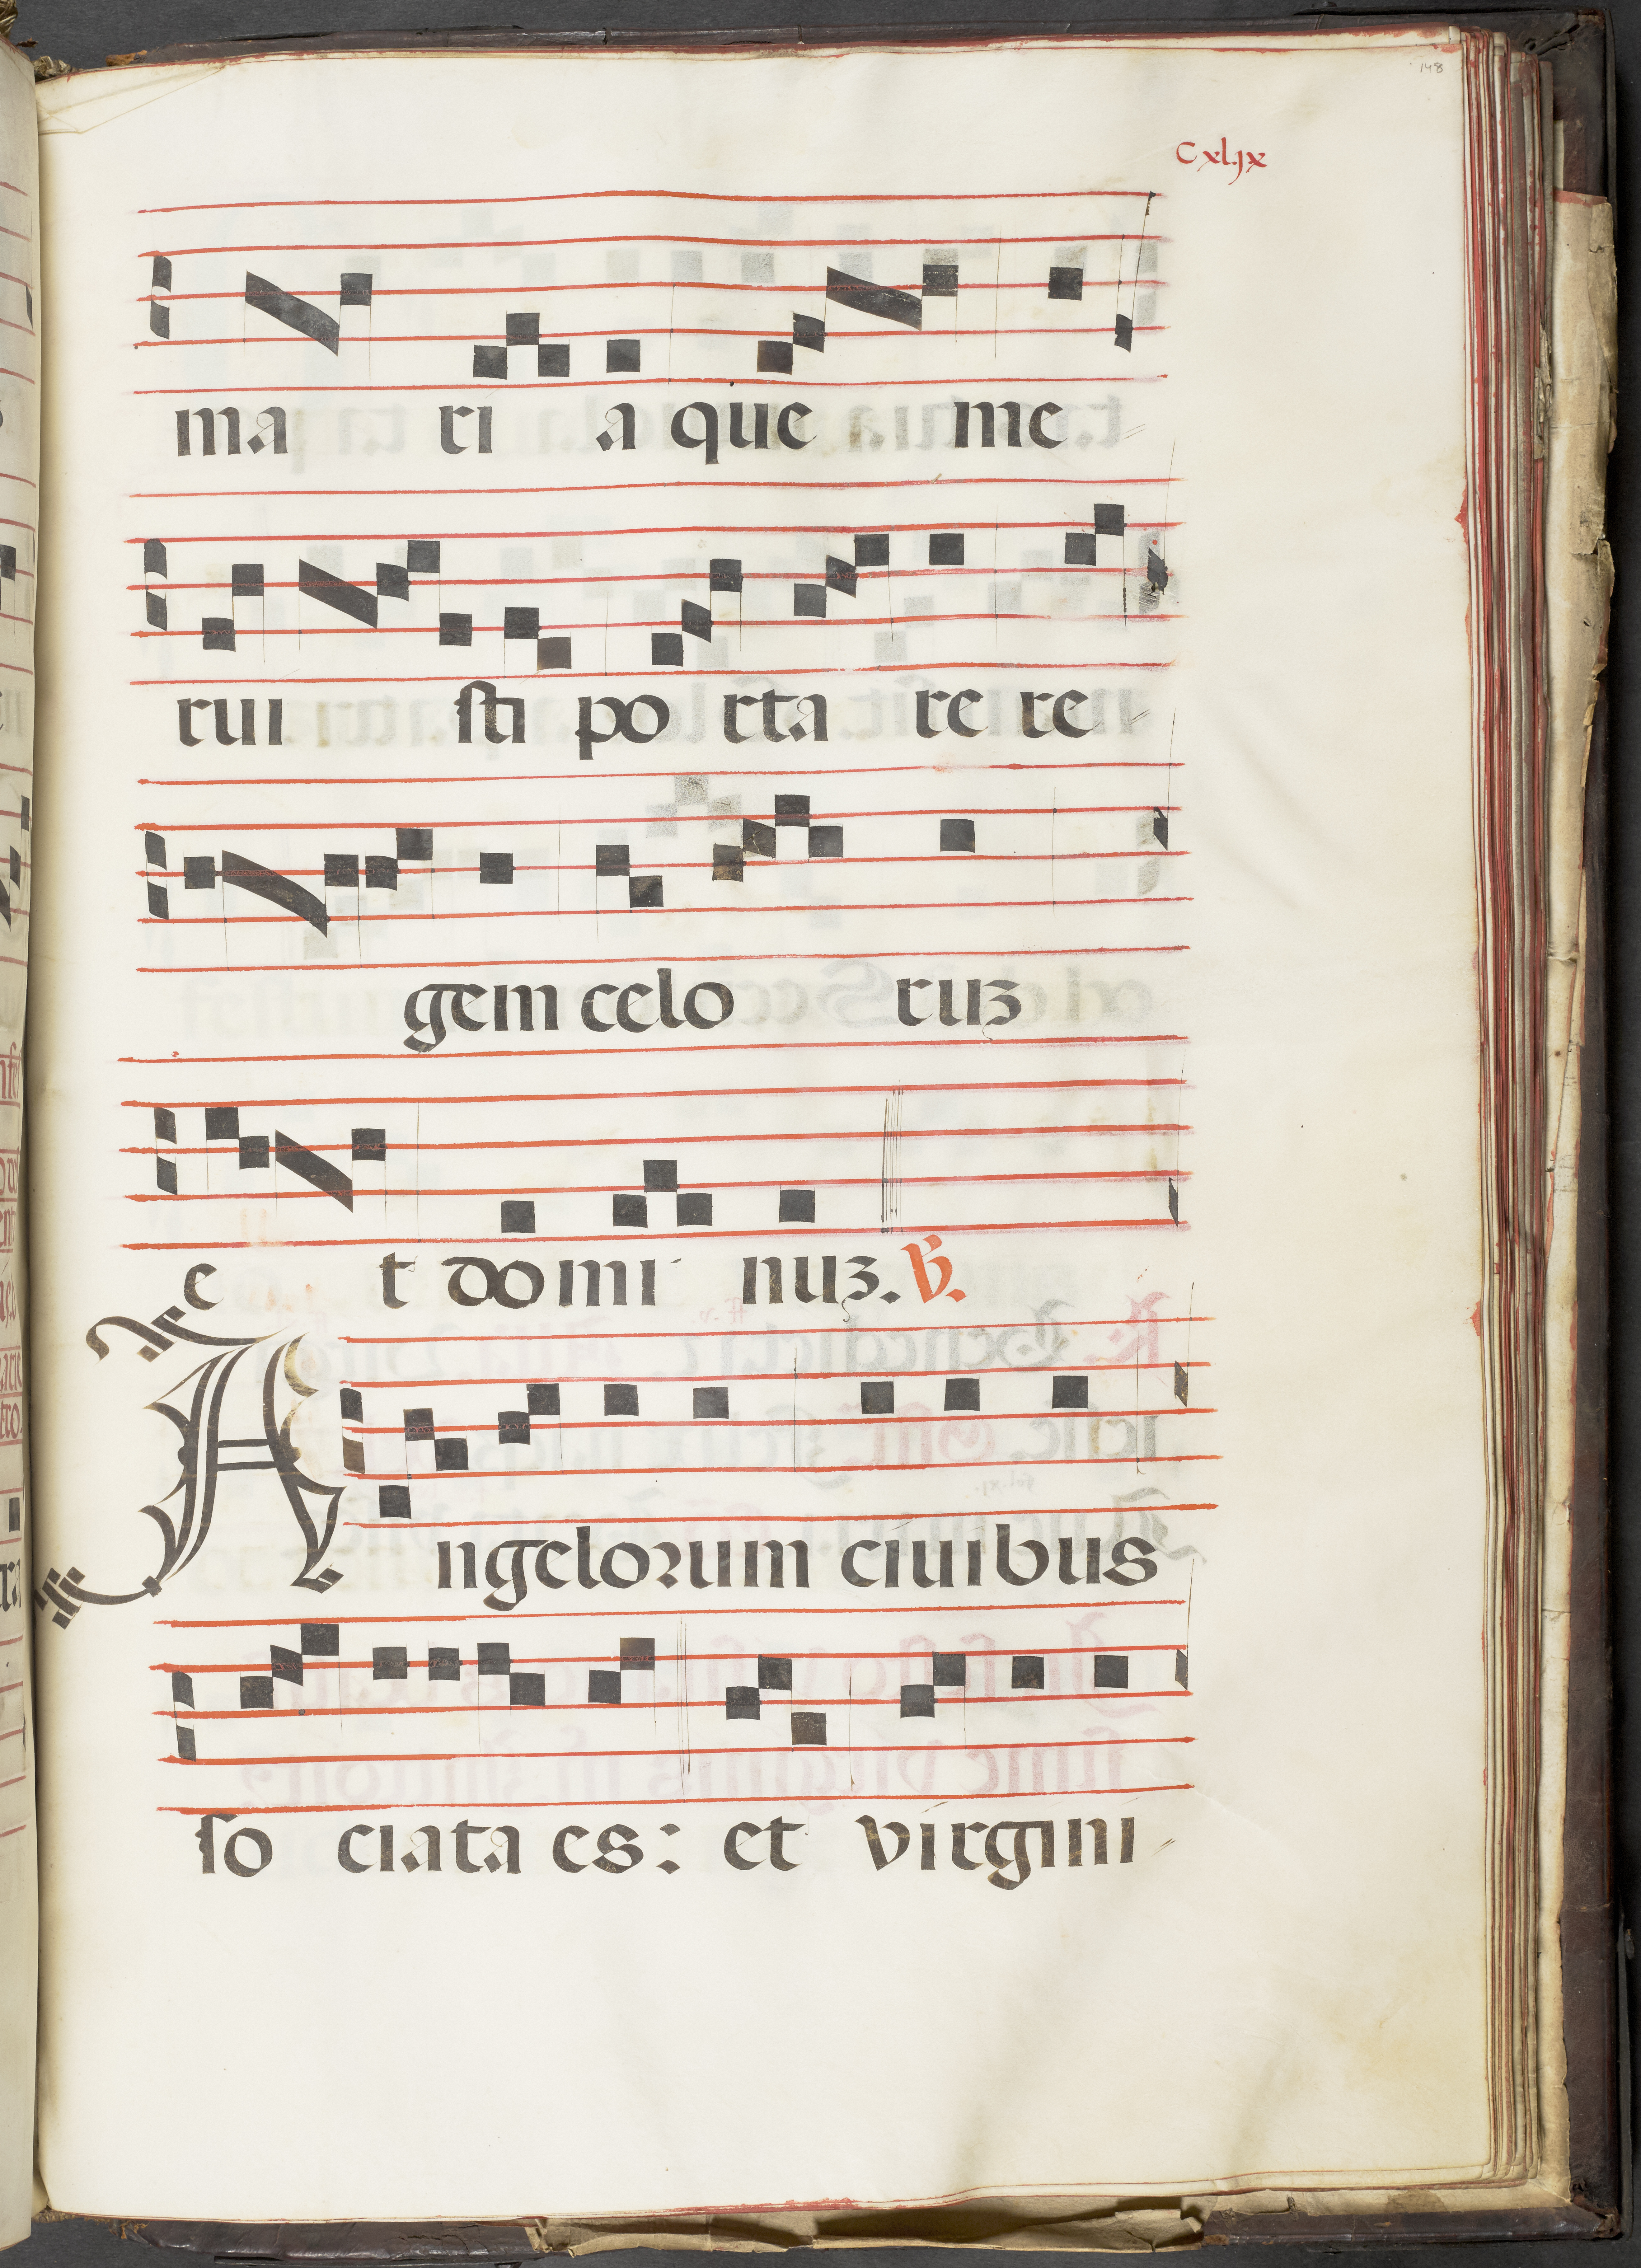 148
Cxl.jx
ma ri a que me
rui sti po rta re re
gem celo ruꝫ
e t domi nuꝫ. ℣.
Angelorum ciuibus
so ciata es: et virgini